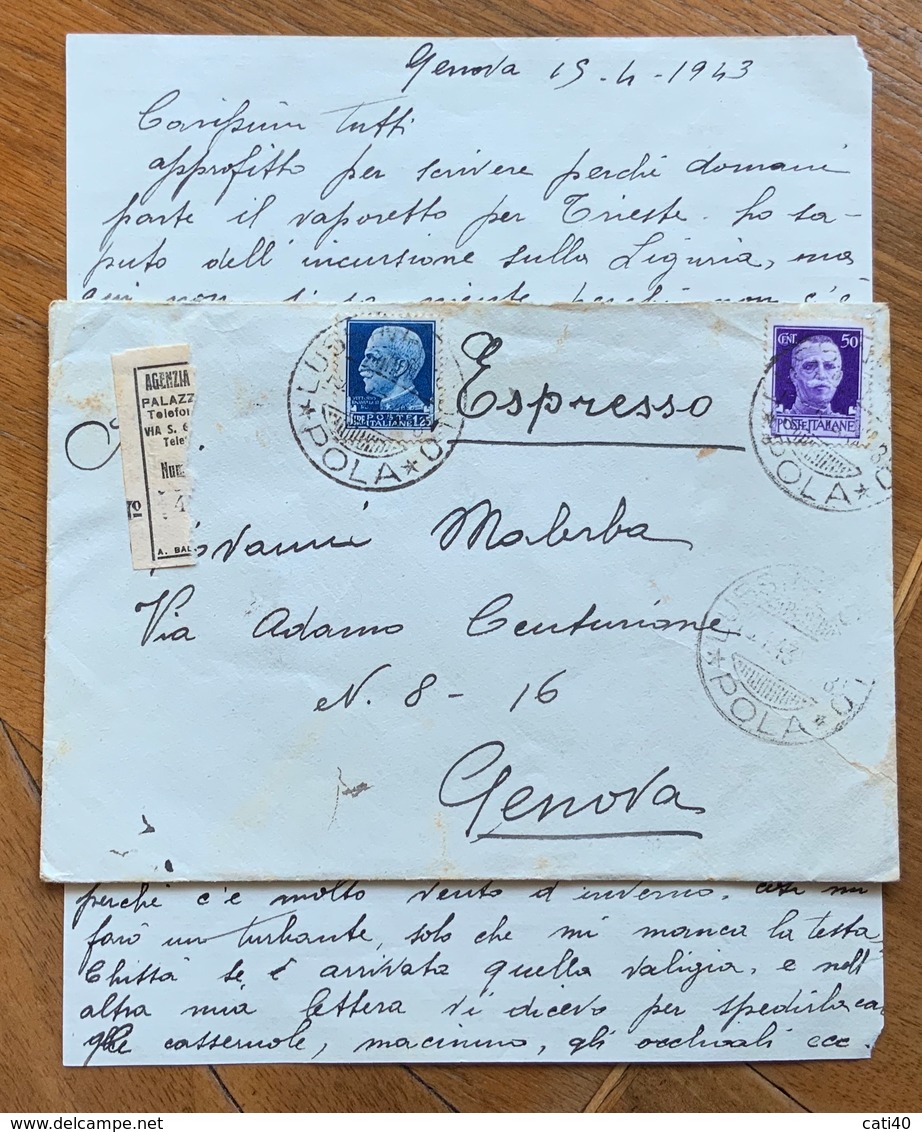 Genova 15-4-1943
Carissimi tutti
approfitto per scrivere perchè domani
parte il vaporetto per Trieste. ho sa-
puto dell'incursione sulla Liguria, ma
qui non si sa niente perchè non c'è
AGENZIA
PALAZZ
Telefon
VIA S. G
Telef
Num
4
A. BAL
LUS
POLA
POSTE ITALIANE 1,25
Espresso
CENT. 50
POSTE ITALIANE
POLA
Giovanni Malerba
Via Adamo Centurione
N. 8 - 16
Genova
LUS
43
POLA
perchè c'è molto vento d'inverno, così mi
farò un turbante, solo che mi manca la testa
Chissà se è arrivata quella valigia, e nell'
altra mia lettera vi dicevo per spedirla
casseruole, macinino, gli occhiali ecc.
cati40